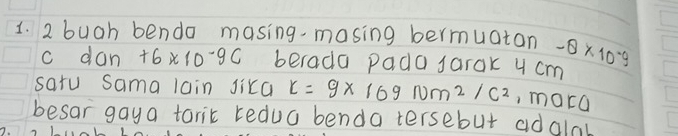 1. 2 buah benda masing-masing bermuatan -8 x 10^-9
C dan +6 x 10^-9C berada pada jarak 4 cm
satu sama lain jika k = 9 x 109 Nm² / C², maka
besar gaya tarik kedua benda tersebut adalah